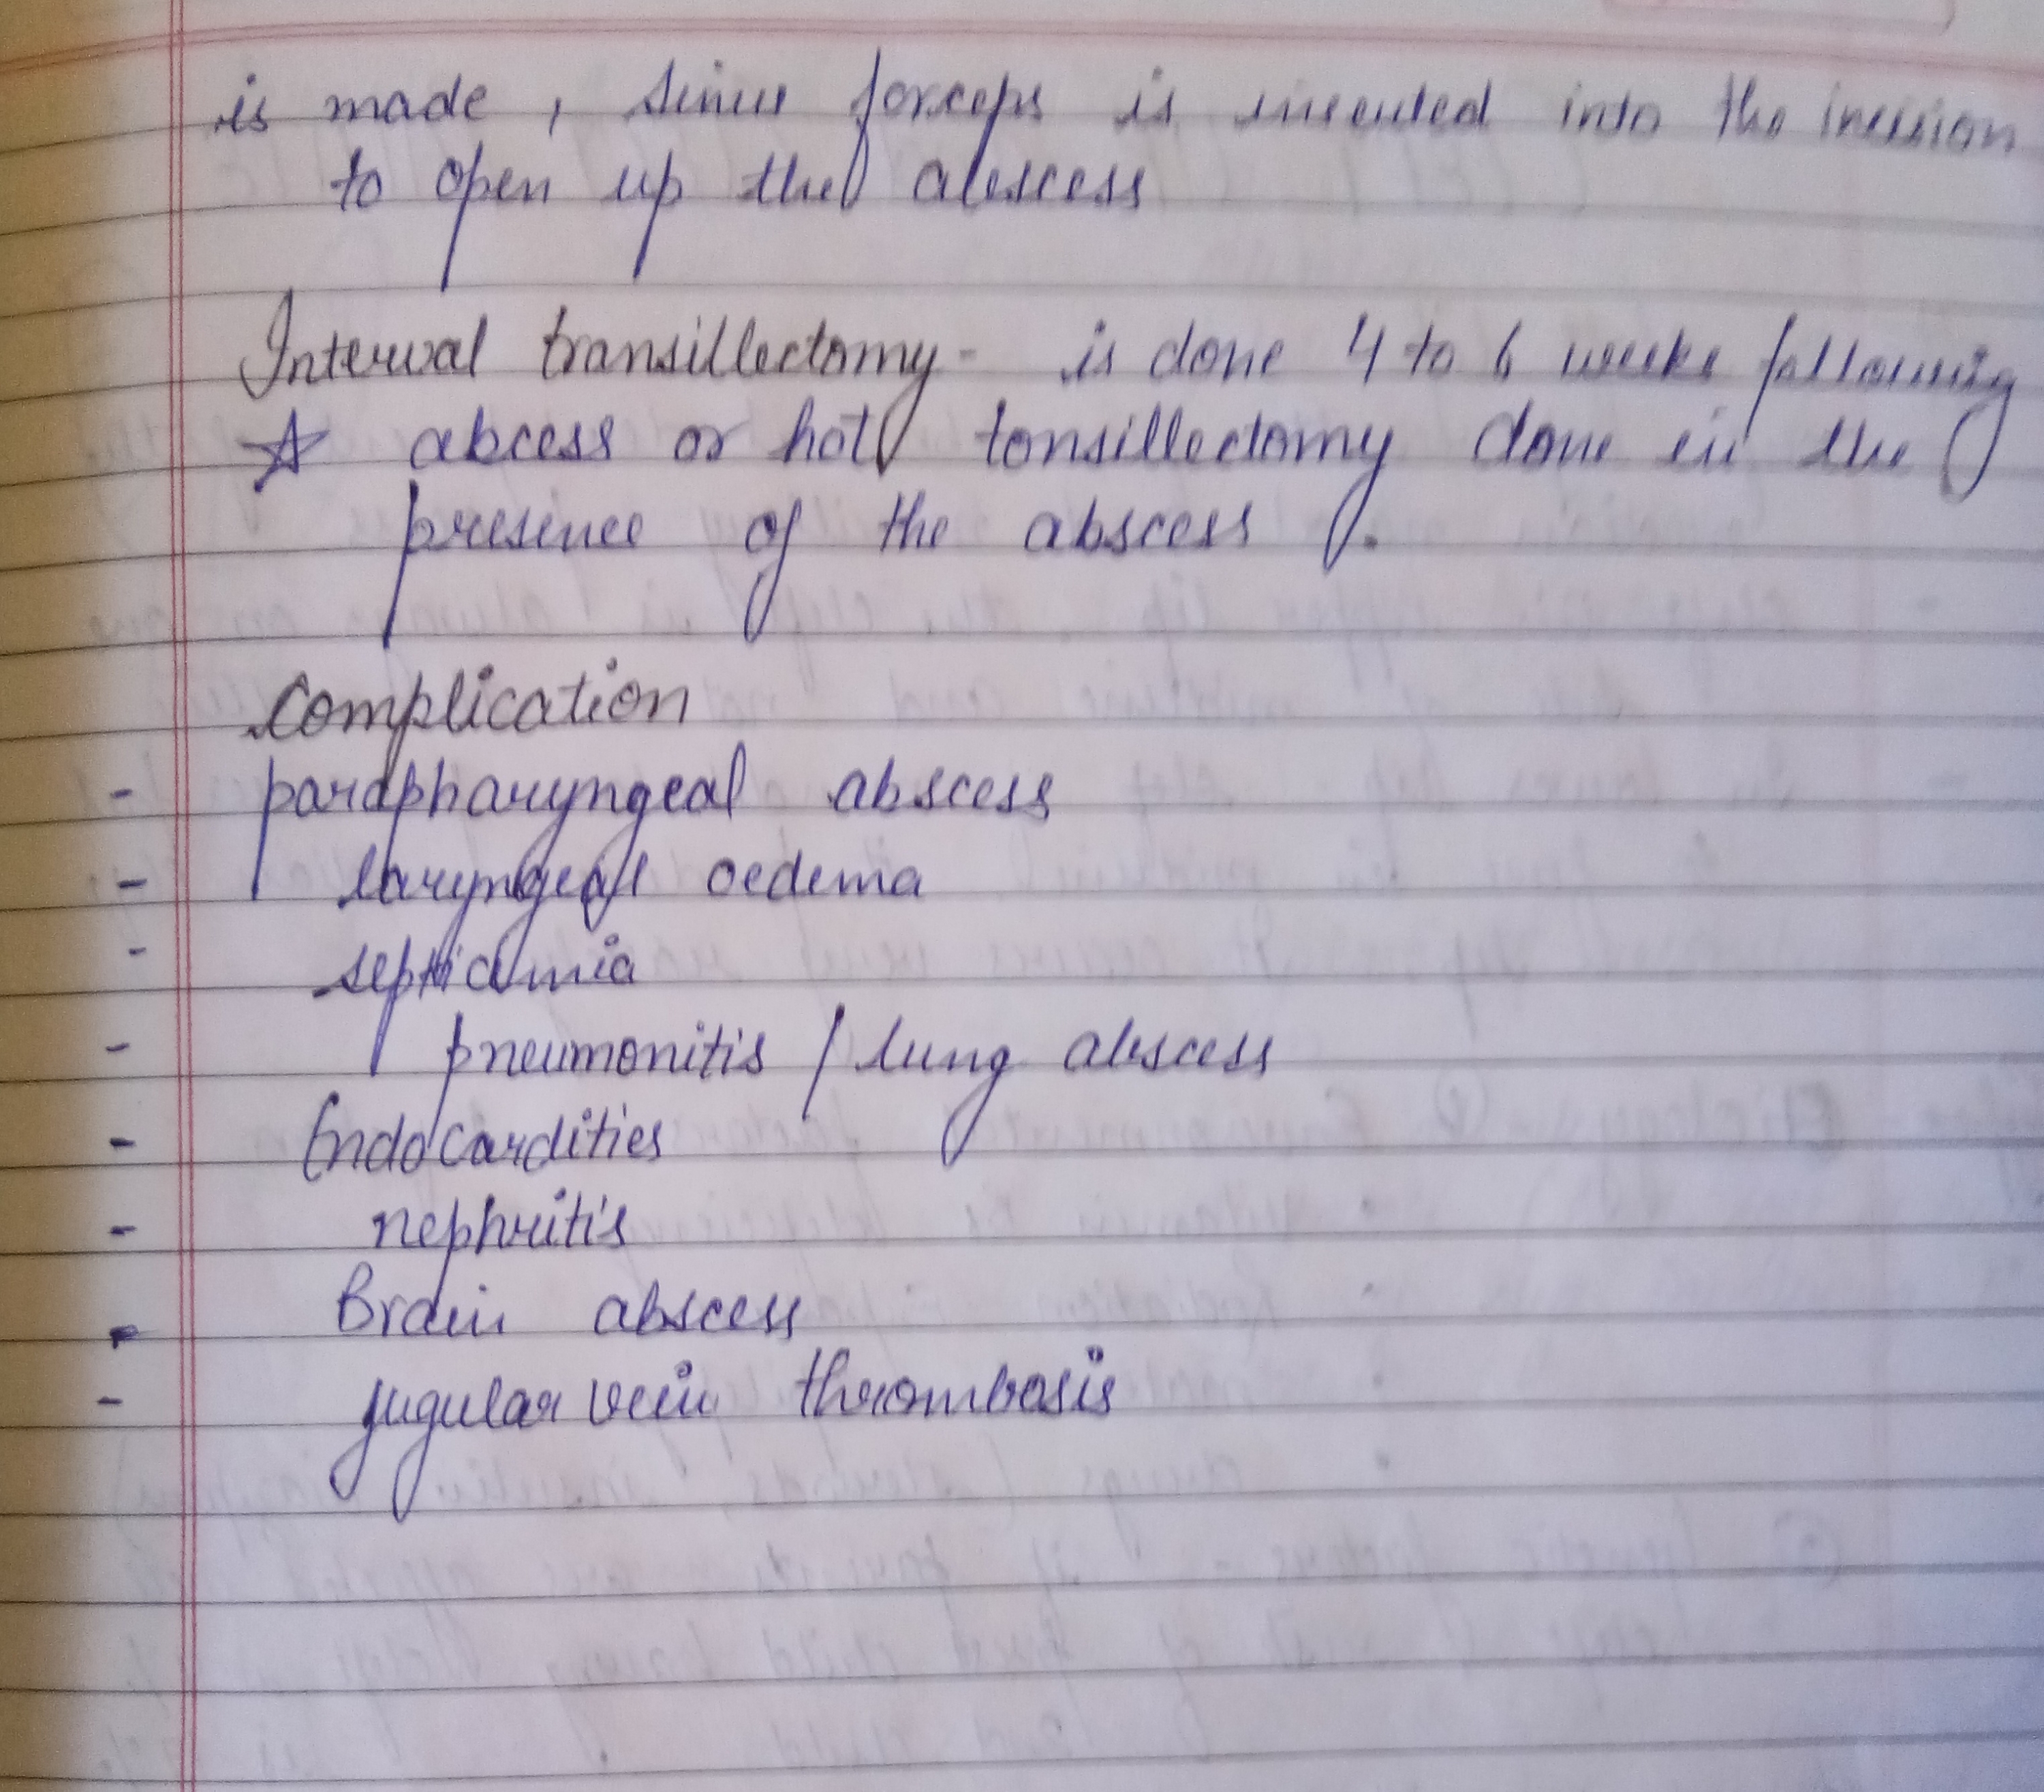 is made, sinus forceps is inserted into the incision
to open up the abscess
Interval transillectomy - is done 4 to 6 weeks following
☆ abcess or hot tonsillectomy done in the
presence of the abscess.
Complication
- parapharyngeal abscess
- laryngeal oedema
- septicimia
- pneumonitis / lung abscess
- Endocardities
- nephritis
- Brain abscess
- jugular vein thrombosis